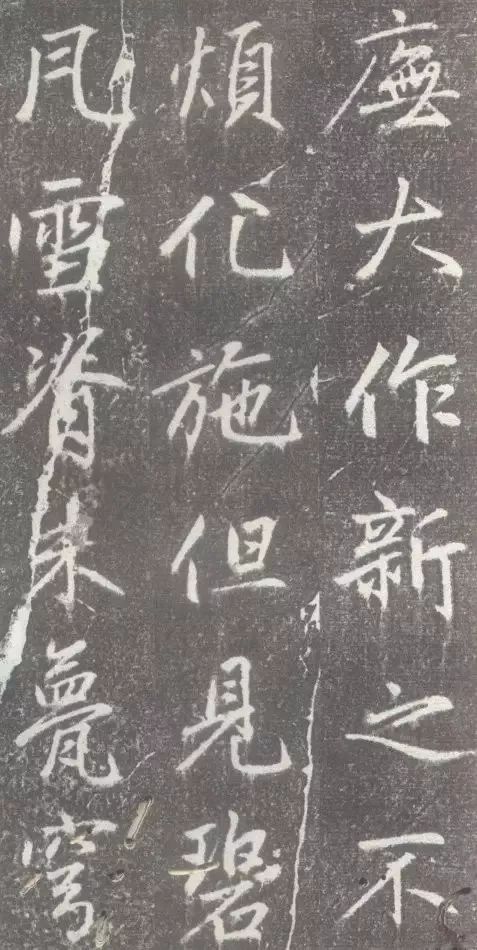 廡大作新之不
煩化施但見碧
瓦雪脊朱甍穹